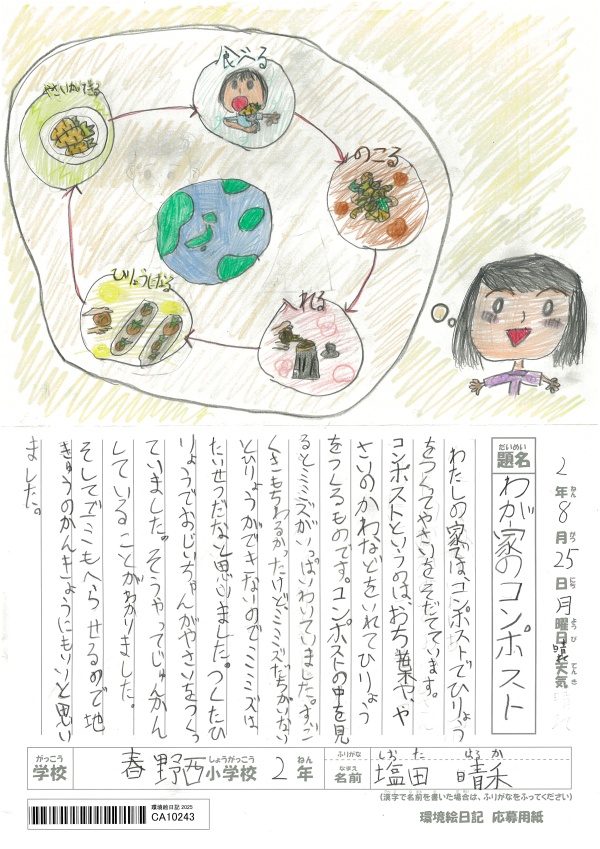 やさいができる
食べる
のこる
ひりょうになる
入れる
2年8月25日月曜日晴れ天気
ねん がつ にち ようび てんき
だいめい
題名
わが家のコンポスト
わたしの家では、コンポストでひりょう
をつくてやさいをそだてています。
コンポストというのは、おち葉や、や
さいのかわなどをいれてひりょう
をつくるものです。コンポストの中を見
るとミミズがいっぱいわいていました。すご
くきもちわるかったけど、ミミズたちがいない
とひりょうができないのでミミズは、
たいせつだなと思いました。つくたひ
りょうでおじいちゃんがやさいをつくっ
ていました。そうやってじゅんかん
していることがわかりました。
そしてゴミもへらせるので地
きゅうのかんきょうにもいいと思い
ました。
がっこう
学校
春野西
しょうがっこう
小学校
2
ねん
年
ふりがな
しお た はるか
なまえ
名前
塩田 晴禾
(漢字で名前を書いた場合は、ふりがなをふってください)
環境絵日記 2025
CA10243
環境絵日記 応募用紙